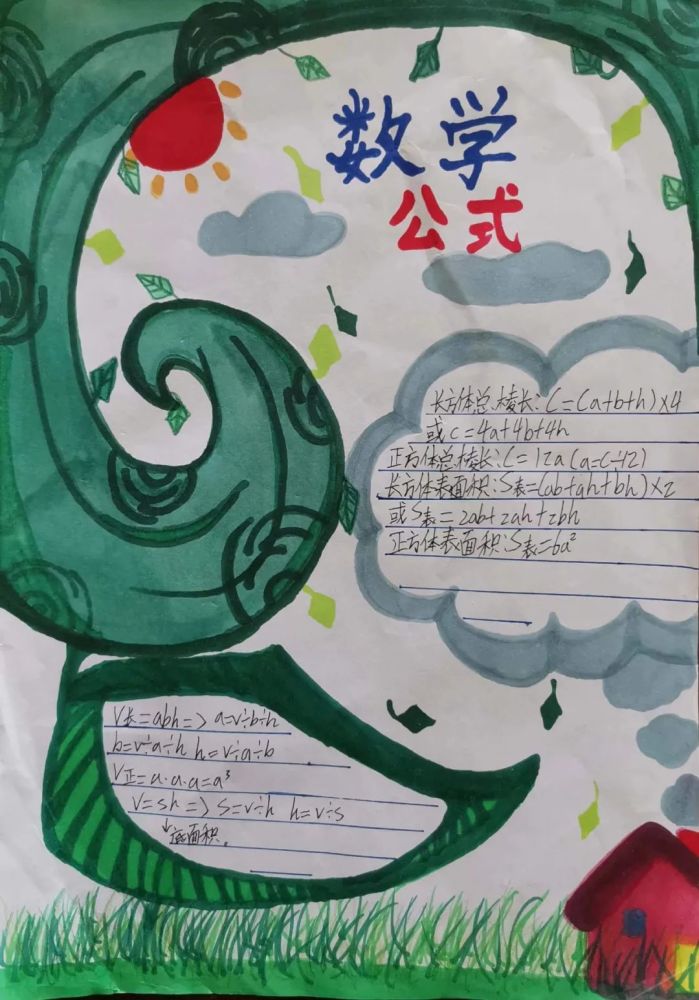 数学
公式
长方体总棱长:C=(a+b+h)×4
或C=4a+4b+4h
正方体总棱长:C=12a(a=C÷12)
长方体表面积:S表=(ab+ah+bh)×2
或S表=2ab+2ah+2bh
正方体表面积:S表=6a²
V长=abh=>a=v÷b÷h
b=v÷a÷h h=v÷a÷b
V正=a·a·a=a³
V=sh=>s=v÷h h=v÷s
↓底面积。